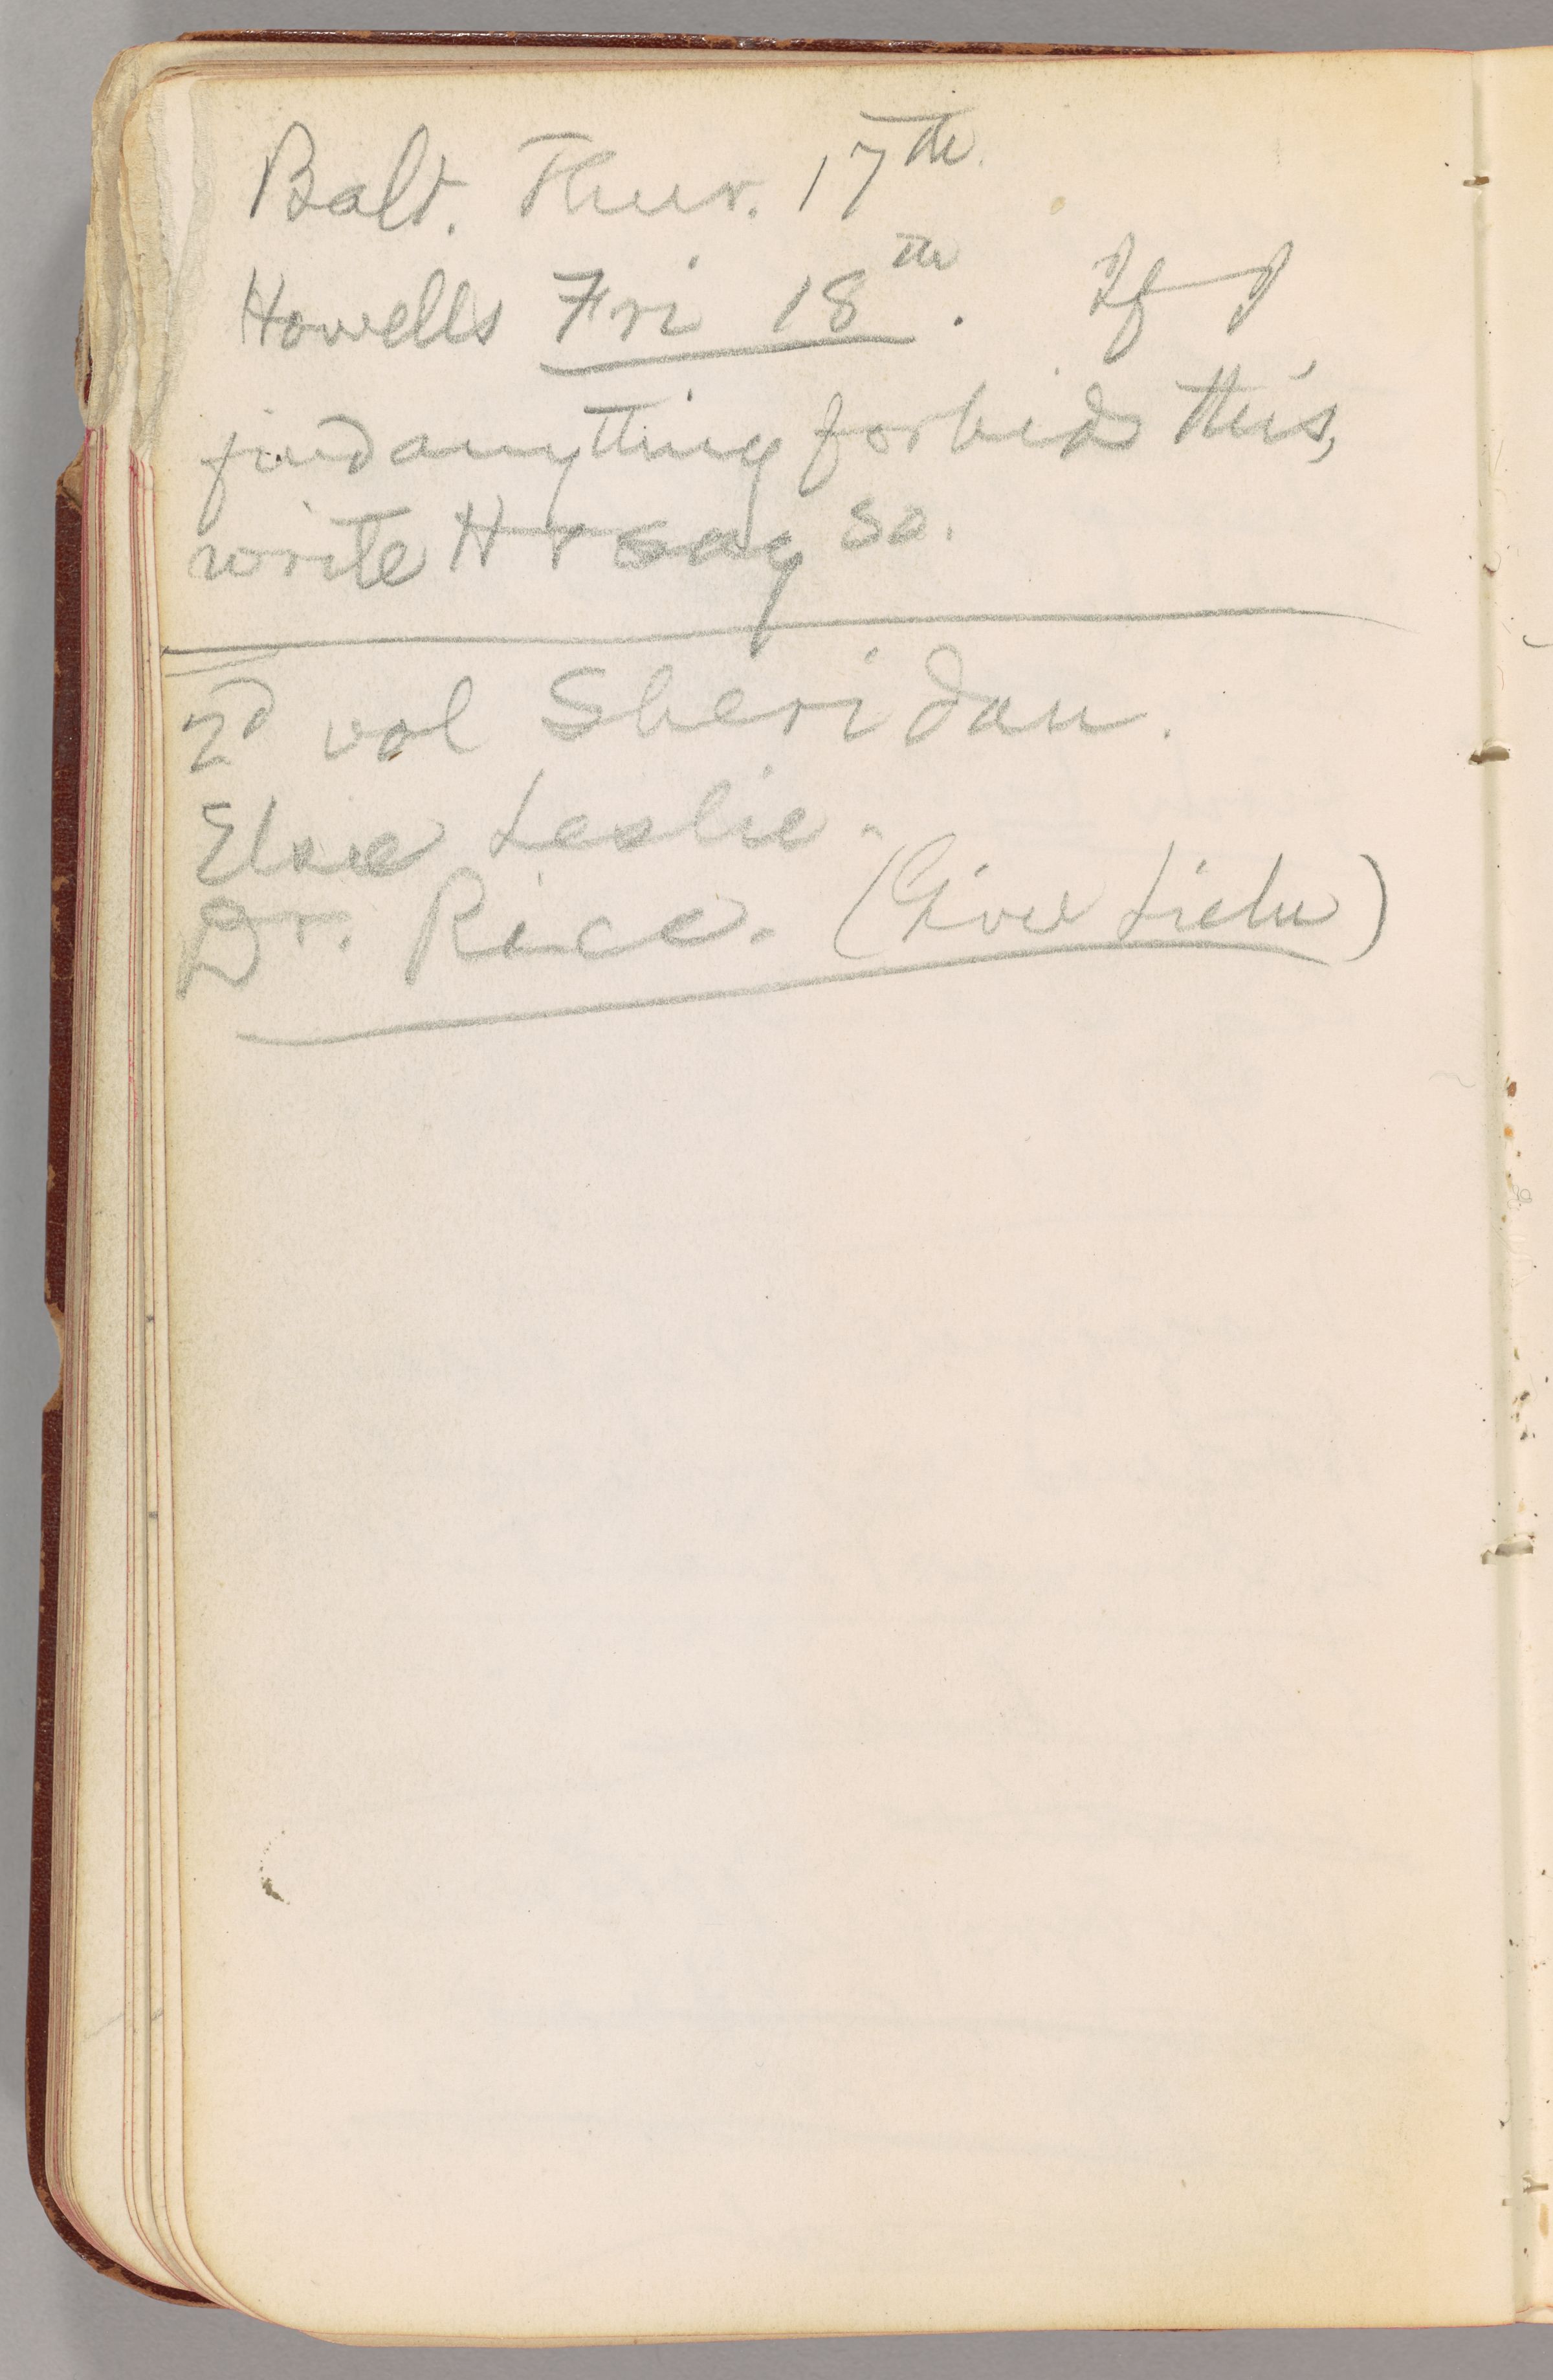 Balt. Thur. 17th.
Howells Fri 18th. If I
find anything forbids this,
write H & say so.
2d vol Sheridan.
Elsie Leslie.
Dr. Rice. (Give